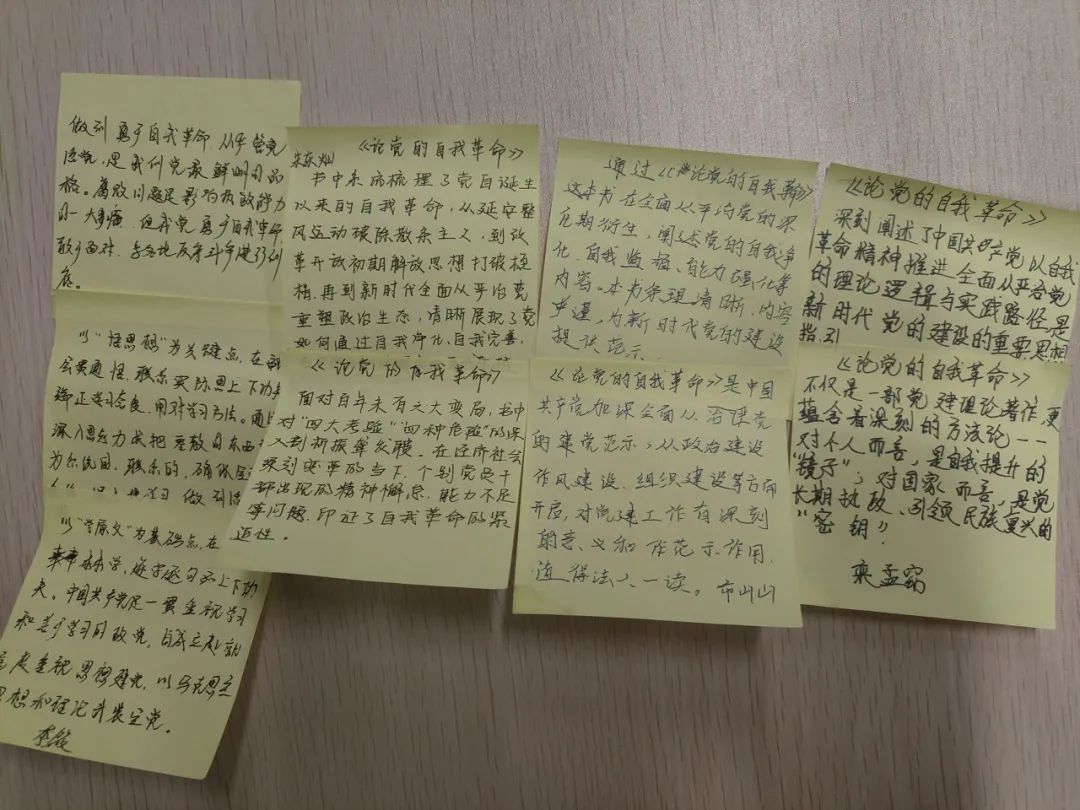 做到勇于自我革命,从严管党
治党,是我们党最鲜明的品
格。腐败问题是影响执政能力
的一大毒瘤,但我党勇于自我革命,
敢于面对,与各地反腐斗争进行到
底。
以“悟思想”为关键点,在
会贯通悟、联系实际思上下功夫
端正学习态度,用对学习方法。
深入思
为系统的、联系的、
做到
以“学原文”为基础点,在
本学,逐字逐句学上下功
夫。中国共产党是一贯重视学习
和善于学习的政党,自成立起就
高度重视思想建党,以马克思主
思想和理论武装全党。
李俊
朱东灿 《论党的自我革命》
书中系统梳理了党自诞生
以来的自我革命,从延安整
风运动破除教条主义,到改
革开放初期解放思想打破桎
梏,再到新时代全面从严治党
重塑政治生态,清晰展现了党
如何通过自我净化、自我完善,
《论党的自我革命》
面对百年未有之大变局,书中
对“四大考验”“四种危险”的深
入剖析振聋发聩。在经济社会
深刻变革的当下,个别党员干
部出现的精神懈怠、能力不足
等问题,印证了自我革命的紧
迫性。
通过《论党的自我革命》
这本书在全面从严治党的深
化期衍生,阐述党的自我净
化、自我监督、能力强化等
内容。本书条理清晰、内容
严谨,为新时代党的建设
提供范示.
《论党的自我革命》是中国
共产党加深全面从治课党
的建党范示,从政治建设
作风建设、组织建设等方面
开启,对党建工作有深刻
的意义和作范示作用,
值得法人一读。
《论党的自我革命》
深刻阐述了中国共产党以自我
革命精神推进全面从严治党
的理论逻辑与实践路径,是
新时代党的建设的重要思想
指引
《论党的自我革命》
不仅是一部党建理论著作,更
蕴含着深刻的方法论——
对个人而言,是自我提升的
“镜子”,对国家而言,是党
长期执政、引领民族复兴的
“密钥”。
栾孟